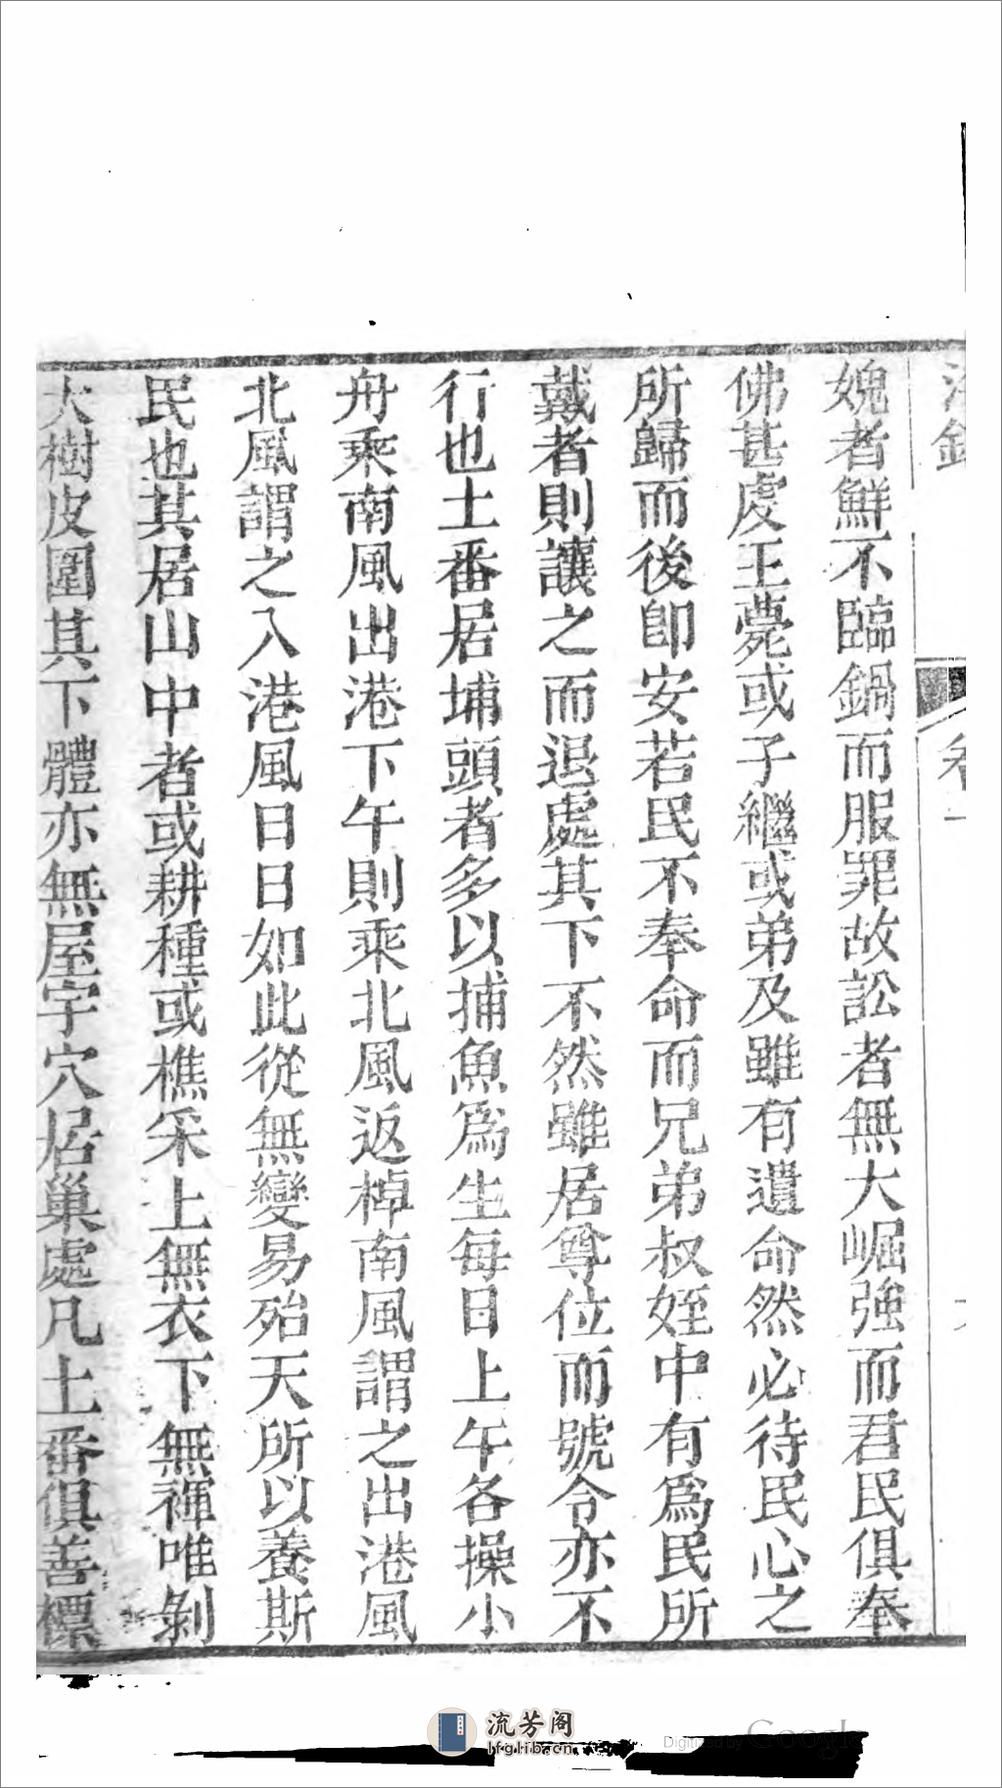 媿者鮮不臨鍋而服罪故訟者無大崛強而君民俱奉
佛甚虔王薨或子繼或弟及雖有遺命然必待民心之
所歸而後卽安若民不奉命而兄弟叔姪中有爲民所
戴者則讓之而退處其下不然雖居尊位而號令亦不
行也土番居埔頭者多以捕魚爲生每日上午各操小
舟乘南風出港下午則乘北風返棹南風謂之出港風
北風謂之入港風日日如此從無變易殆天所以養斯
民也其居山中者或耕種或樵采上無衣下無褌唯剝
大樹皮圍其下體亦無屋宇穴居巢處凡土番俱善標
流芳阁
lfglib.cn
Digitized by Google